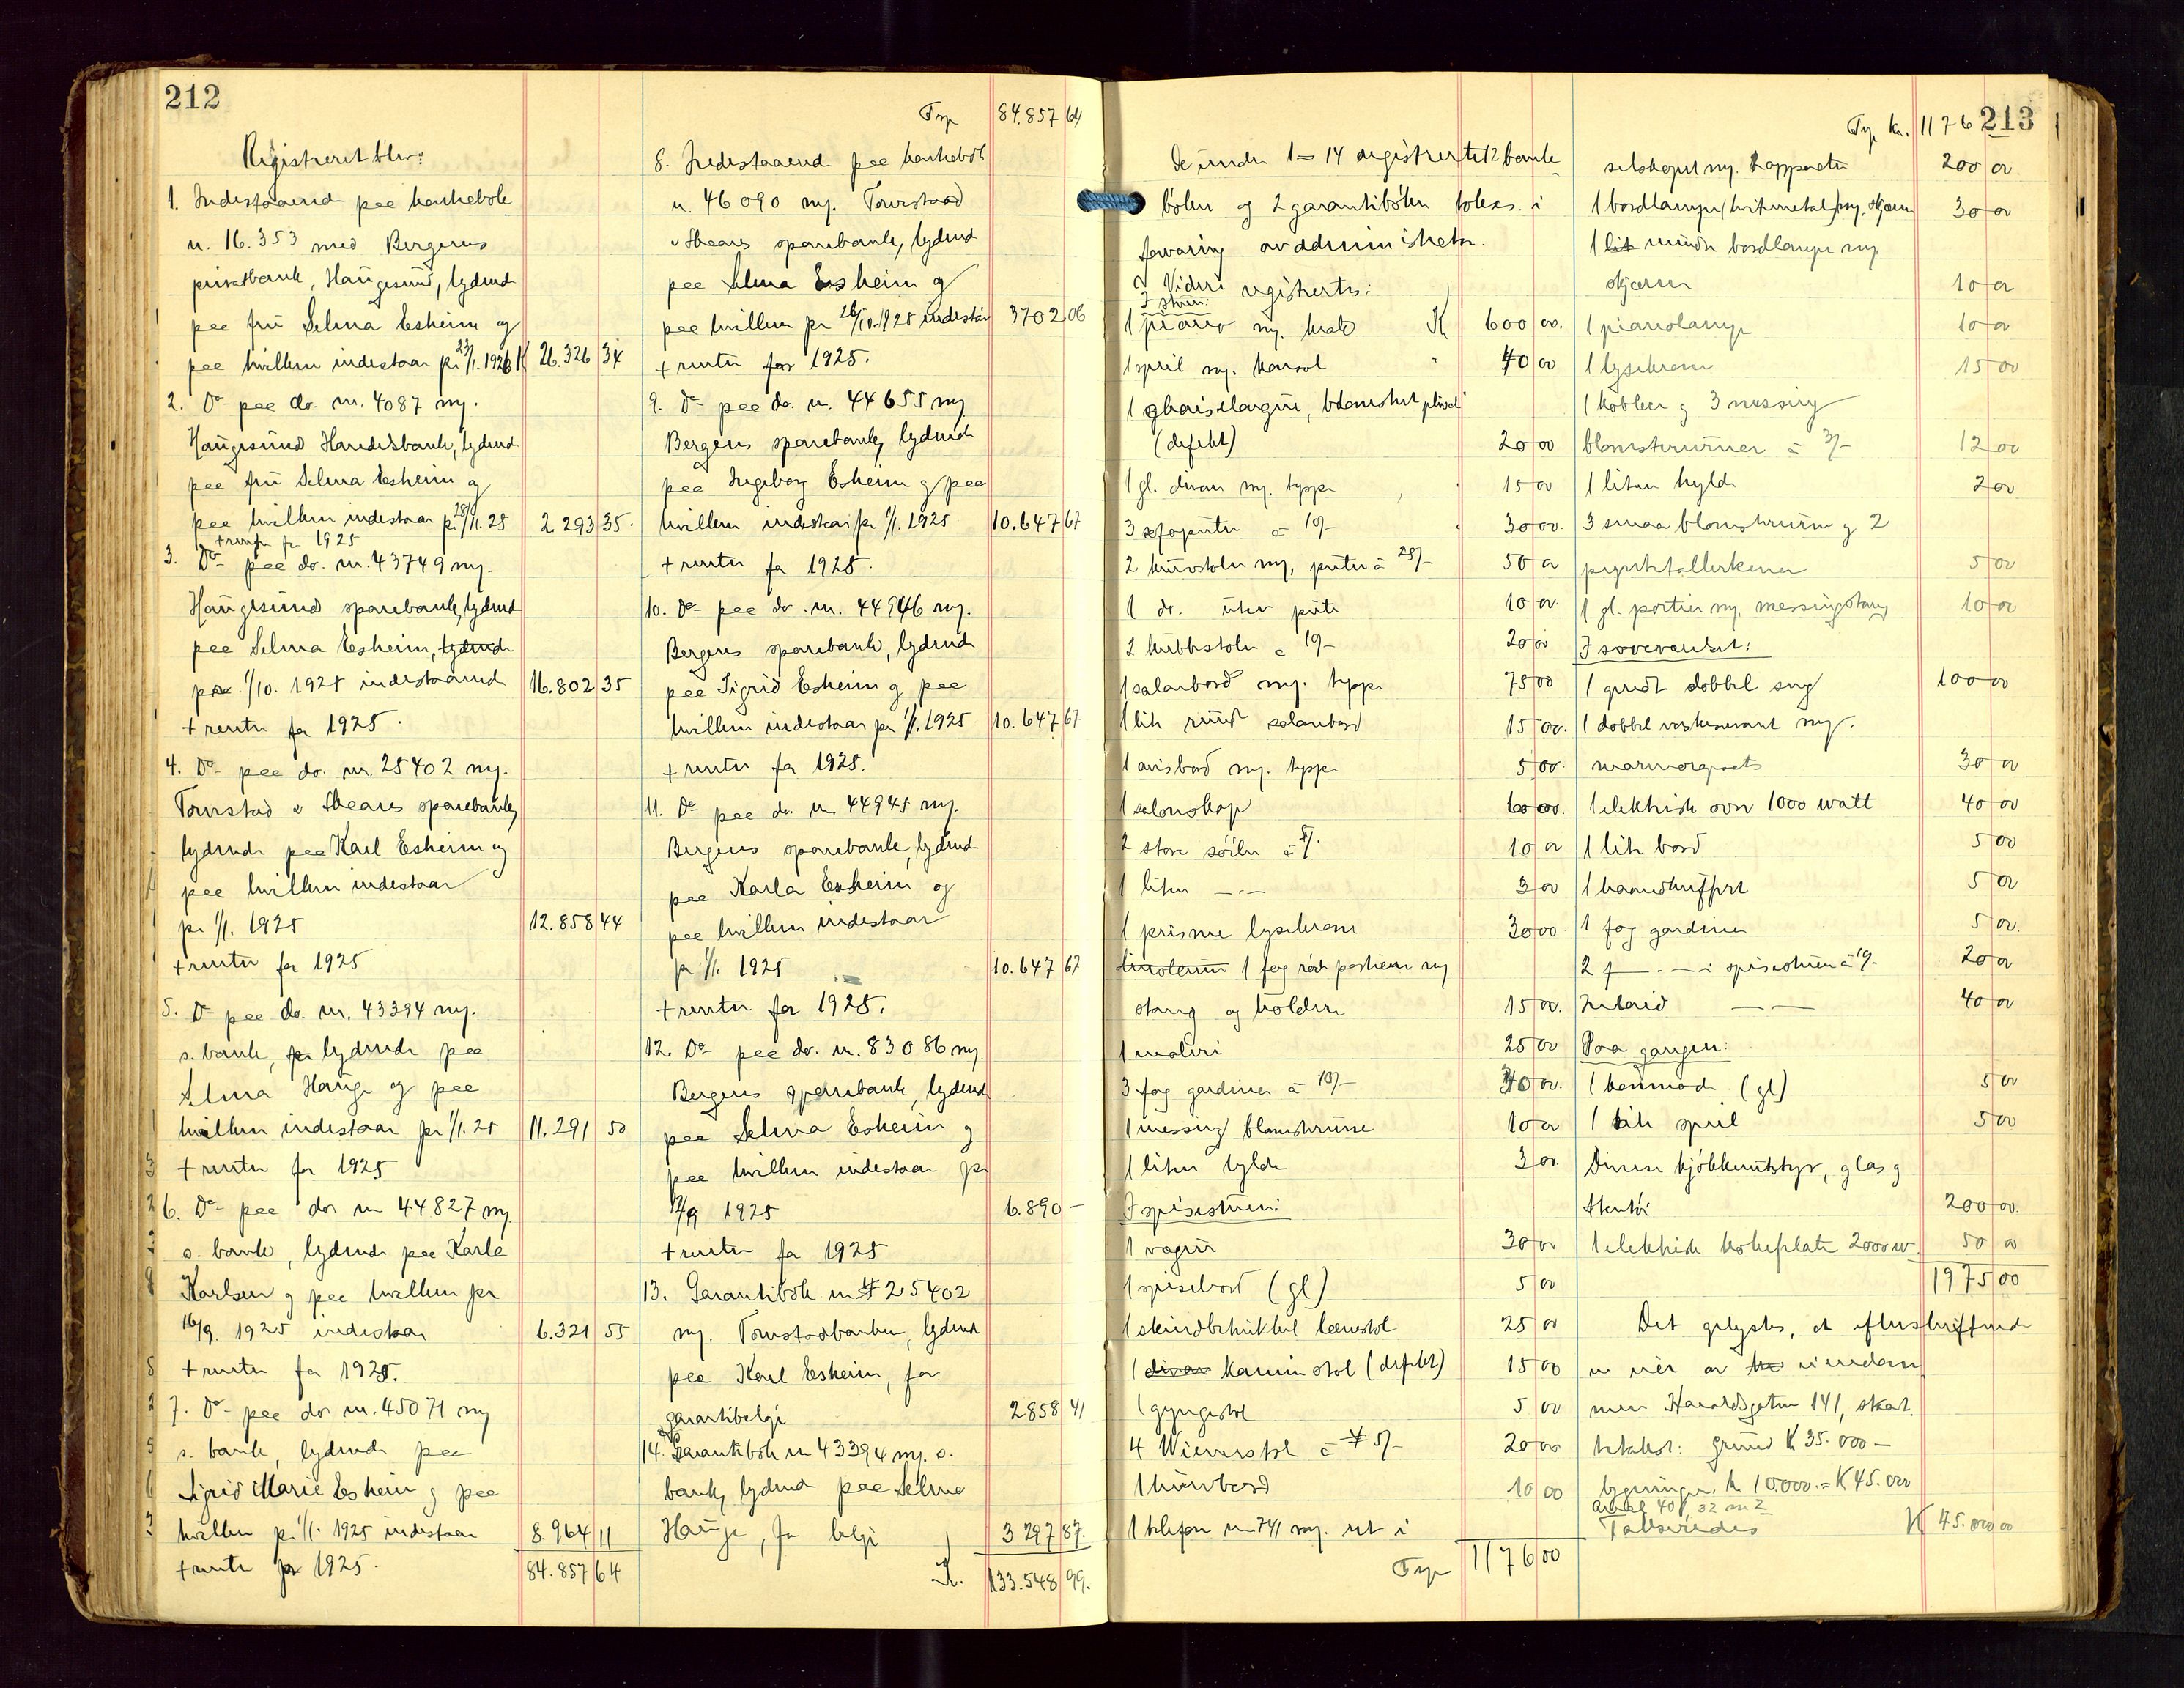 212
Registreret blev:
1. Indestaaend paa bankebok
n. 16.353 med Bergens
privatbank, Haugesund, lydend
paa fru Selma Esheim og
paa hvilken indestaar pr 23/1.1926 K 26.326 34
2. Do paa do. nr. 4087 my.
Haugesund Handelsbank, lydend
paa fru Selma Esheim og
paa hvilken indestaar pr 28/11.25 2 293 35
+ renter for 1925
3. Do paa do. nr. 43749 my.
Haugesund sparebank, lydend
paa Selma Esheim, lydende
paa 1/10. 1925 indestaaende 16.802 35
+ renter for 1925.
4. Do paa do. nr. 25402 my.
Torvestad & Skeares sparebank,
lydende paa Karl Esheim og
paa hvilken indestaar
pr 1/1. 1925 12.858 44
+ renter for 1925
5. Do paa do. nr. 43394 my.
s. bank, lydende paa
Selma Hauge og paa
hvilken indestaar pr 1/1.25 11.291 50
+ renter for 1925
6. Do paa do. nr 44827 my
s. bank, lydende paa Karla
Karlsen og paa hvilken pr
16/9. 1925 indestaar 6.321 55
+ renter for 1925.
7. Do paa do. nr. 45071 my
s. bank, lydende paa
Sigrid Marie Esheim og paa
hvilken pr 1/1. 1925 indestaar 8.964 11
+ rente for 1925. 84.857 64
Trsp 84.857 64
8. Indestaaend paa bankebok
n. 46090 my. Torvestad
& Skeares sparebank, lydend
paa Selma Esheim og
paa hvilken pr 26/10.1925 indestår 3702 06
+ renter for 1925.
9. Do paa do. n. 44655 my
Bergens sparebank, lydend
paa Ingeborg Esheim og paa
hvilken indestaar pr 1/1. 1925 10.647 67
+ renter for 1925.
10. Do paa do. nr. 44946 my.
Bergens sparebank, lydend
paa Sigrid Esheim og paa
hvilken indestaar pr 1/1. 1925 10.647 67
+ renter for 1925.
11. Do paa do. nr 44945 my.
Bergens sparebank, lydend
paa Karla Esheim og
paa hvilken indestaar
pr 1/1. 1925 10.647 67
+ renter for 1925.
12. Do paa do. nr. 83086 my.
Bergens sparebank, lydend
paa Selma Esheim og
paa hvilken indestaar pr
1925 6.890 -
+ renter for 1925
13. Garantibok nr 25402
my. Torvestadbanken, lydend
paa Karl Esheim, for
garantibeløp 2858 41
14. Garantibok nr 43394 my. s.
bank, lydend paa Selma
Hauge, for beløp 3 297 87.
K. 133.548 99.
De under 1 - 14 registrerte 12 bank-
bøker og 2 garantibøker tokes i
forvaring av administrator.
Videre registrertes:
I stuen:
1 piano my. krak K 600 00.
1 speil my. konsol " 40 00
1 chaiselongue, blomstret plysch
(defekt) 20 00
1 gl. divan my. teppe 15 00
3 sofaputer a 10/- 30 00.
2 kurvstoler my. puter a 25/- 50 00
1 do. uten pute 10 00.
2 kubbstoler a 10/- 20 00
1 salonbord my. teppe 75 00
1 lite rund salonbord 15 00.
1 avisbord my. teppe 5 00.
1 salonskap 60 00.
2 store søiler a 5/. 10 00
1 liten - . - 3 00
1 prisme lysekrone 30 00
linoleum 1 fag rød portiere my.
stang og holdere 15 00.
1 maleri 25 00.
3 fag gardiner a 10/- 30 00.
1 messing blomsterurne 10 00
1 liten hylde 3 00.
I spisestuen:
1 vogur 30 00
1 spisebord (gl) 5 00
1 skindbetrukket lænestol 25 00
1 divan kamin stol (defekt) 15 00
1 gyngestol 5 00
4 Wienerstol a 5/- 20 00
1 kurvbord 10 00
1 telefon nr 741 my. ret i
Trsp 1176 00
213
Trsp kr. 1176
selskapet my. 2 apparater 200 00
1 bordlampe (hvitmetal) my. skjærm 30 00
1 lit mindre bordlampe my.
skjærm 10 00
1 pianolampe 10 00
1 lysekrone 15 00
1 kobber og 3 messing
blomsterurner a 3/- 12 00
1 liten hylde 2 00
3 smaa blomsterurner og 2
pyntetallerkener 5 00
1 gl. portier my. messingstang 10 00
I soveværelset:
1 gredt dobbel seng 100 00
1 dobbel vaskeservant my.
marmorplate 30 00
1 elektrisk ovn 1000 watt 40 00
1 lite bord 5 00
1 haandkuffert 5 00
1 fag gardiner 5 00.
2 f - . - i spisestuen a 10/- 20 00
Inlaid - - 40 00
Paa gangen:
1 kommode (gl) 5 00
1 lite speil 5 00
Diverse kjøkkenutstyr, glas og
stentøi 200 00.
1 elektrisk kokeplate 2000 w. 50 00
1975 00
Det oplystes, at efterskriftende
er eier av eiendom
men Haraldsgaten 141, skat.
tetakst: grund K 35.000 -
bygninger, kr 10.000. = K 45.000
areal 401 32 m2
Takseredes K 45.000 00